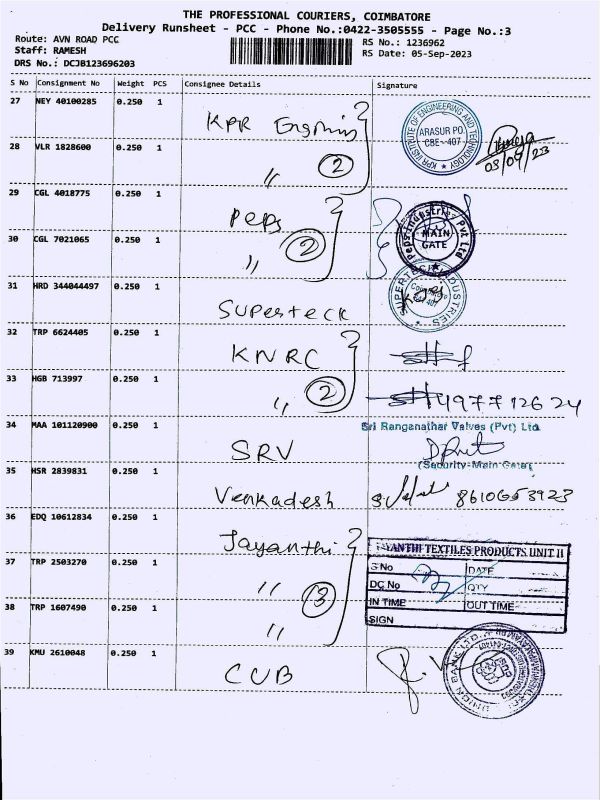 THE PROFESSIONAL COURIERS, COIMBATORE
Delivery Runsheet - PCC - Phone No.:0422-3505555 - Page No.:3
Route: AVN ROAD PCC
RS No.: 1236962
Staff: RAMESH
RS Date: 05-Sep-2023
DRS No.: DCJB123696203
S No Consignment No Weight PCS Consignee Details Signature
27 NEY 40100285 0.250 1 KPR
KPR INSTITUTE OF ENGINEERING AND TECHNOLOGY
ARASUR PO.
CBE - 407
28 VLR 1828600 0.250 1 " 2
03/09/23
29 CGL 4018775 0.250 1 Peps
Peps Industries Pvt Ltd
MAIN
GATE
30 CGL 7021065 0.250 1 " 2
31 HRD 344044497 0.250 1 Superteck
INDUSTRIES
32 TRP 6624405 0.250 1 KNRC
33 HGB 713997 0.250 1 " 2
497712624
34 MAA 101120900 0.250 1 SRV
Sri Ranganathar Valves (Pvt) Ltd
(Security-Main Gate)
35 HSR 2839831 0.250 1 Venkadesh
36 EDQ 10612834 0.250 1 Jayanthi
37 TRP 2503270 0.250 1 " 3
38 TRP 1607490 0.250 1 "
JAYANTHI TEXTILES PRODUCTS UNIT II
S No DATE
DC No QTY
IN TIME OUT TIME
SIGN
39 KMU 2610048 0.250 1 CUB